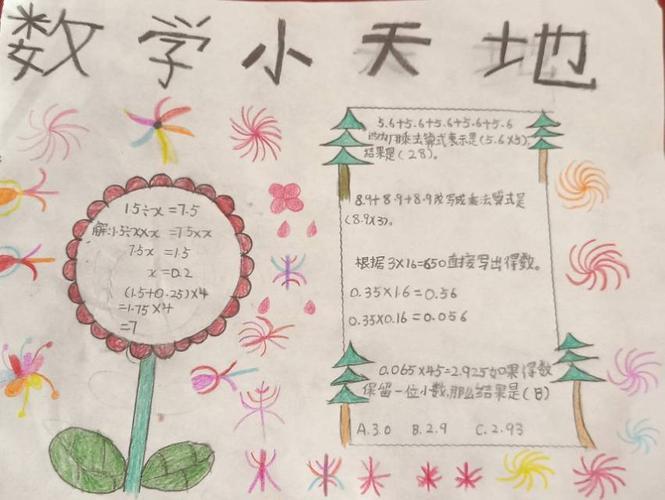 数学小天地
1.5÷x=7.5
解:1.5÷x×x=7.5×x
7.5x=1.5
x=0.2
(1.5+0.25)×4
=1.75×4
=7
5.6+5.6+5.6+5.6+5.6
用乘法算式表示是(5.6×5),
结果是(28)。
8.9+8.9+8.9改写成乘法算式是
(8.9×3)。
根据3×16=650直接写出得数。
0.35×1.6=0.56
0.35×0.16=0.056
0.065×45=2.925如果得数
保留一位小数,那么结果是(B)
A.3.0 B.2.9 C.2.93